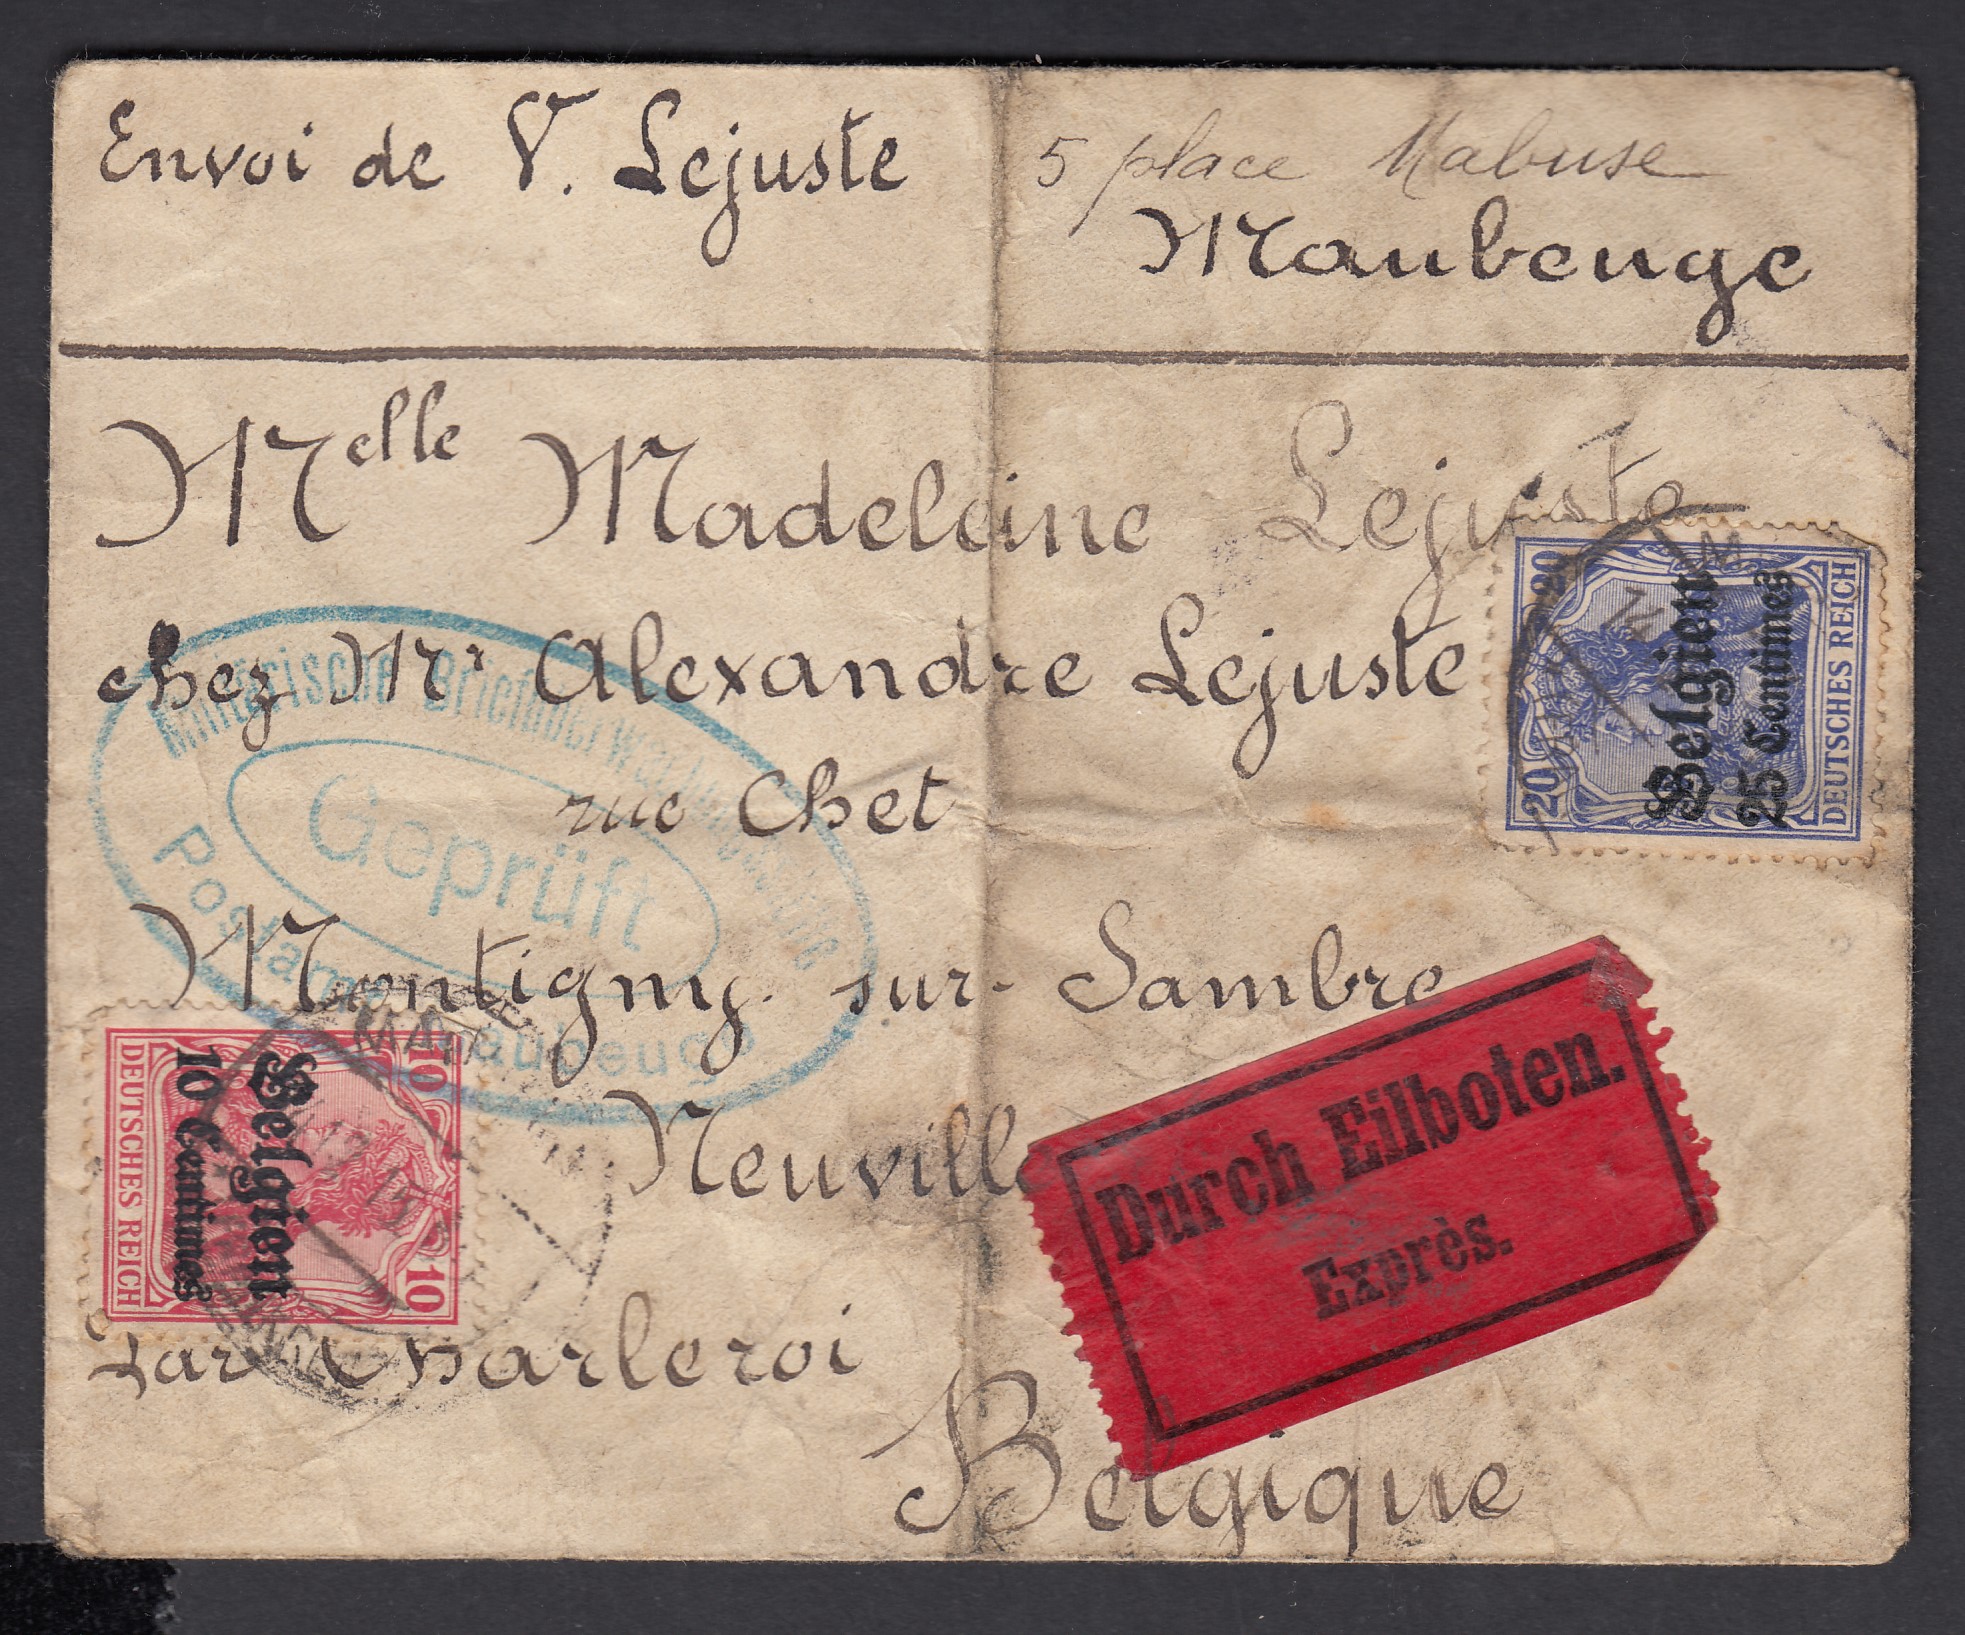 Envoi de V. Lejuste
5 place Mabuse
Maubeuge
Melle Madeleine Lejuste
chez Mr Alexandre Lejuste
rue Chet
Montigny sur Sambre
Neuville
Par Charleroi
Belgique
Militärische Briefüberwachungsstelle
Geprüft
Postamt Maubeuge
20 20
Belgien
25 Centimes
DEUTSCHES REICH
10 10
Belgien
10 Centimes
DEUTSCHES REICH
Durch Eilboten.
Exprès.